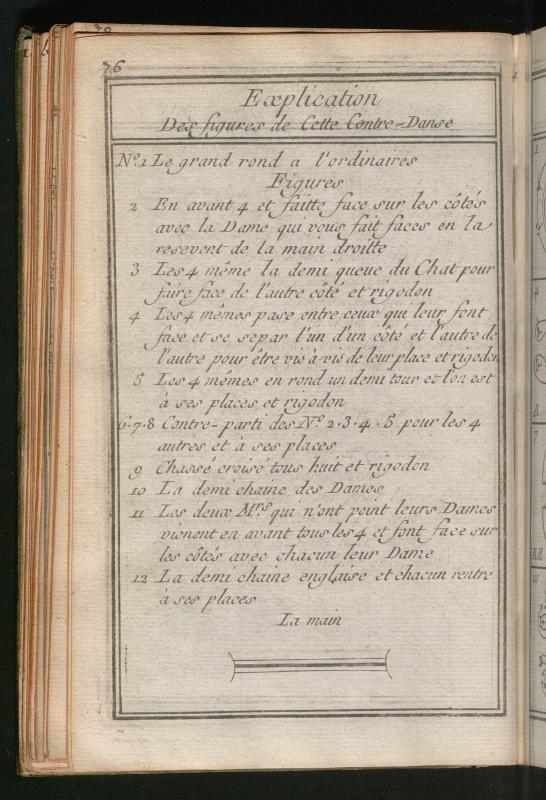 76
Explication
Des figures de Cette Contre-Danse
No. 1 Le grand rond a l'ordinaires
Figures
2 En avant 4 et faitte face sur les côtés
avec la Dame qui vous fait faces en la
resevent de la main droitte
3 Les 4 même la demi queue du Chat pour
faire face de l'autre côté et rigodon
4 Les 4 mêmes pase entre ceux qui leur font
face et se separ l'un d'un côté et l'autre de
l'autre pour être vis à vis de leur place et rigodon
5 Les 4 mêmes en rond un demi tour et l'on est
à ses places et rigodon
6·7·8 Contre-parti des No. 2·3·4·5 pour les 4
autres et à ses places
9 Chassé croisé tous huit et rigodon
10 La demi chaine des Dames
11 Les deux Mrs. qui n'ont point leurs Dames
vienent en avant tous les 4 et font face sur
les côtés avec chacun leur Dame
12 La demi chaine englaise et chacun rentre
à ses places
La main